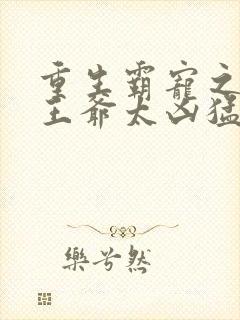 重生霸寵之
王爺太凶猛
樂兮然